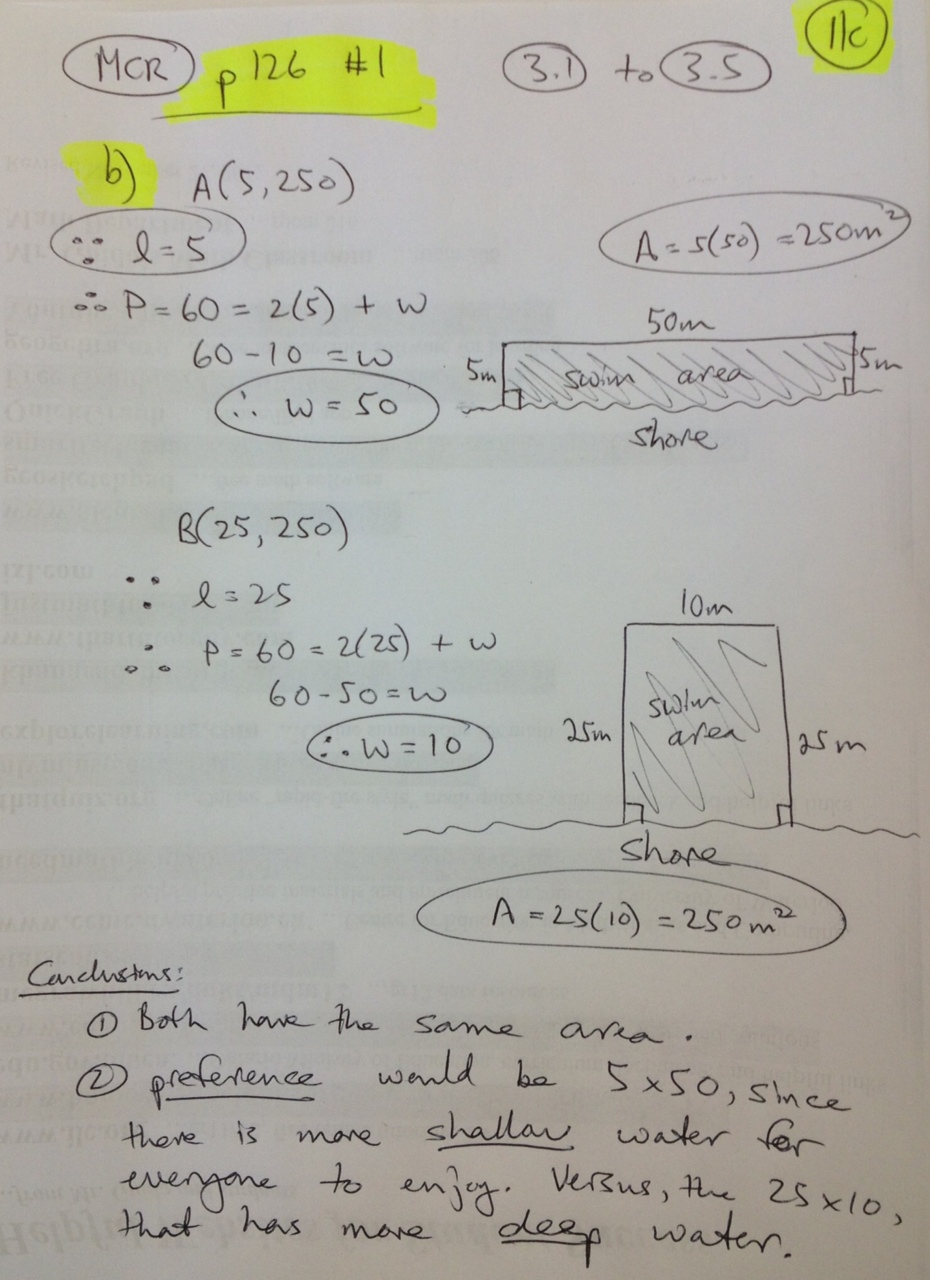 MCR p126 #1 3.1 to 3.5 11c
b) A(5,250)
∵ l = 5
A = 5(50) = 250m²
∴ P = 60 = 2(5) + w
60 - 10 = w
∴ w = 50
50m
5m swim area 5m
shore
B(25, 250)
∵ l = 25
∴ P = 60 = 2(25) + w
60 - 50 = w
∴ w = 10
10m
25m swim area 25m
Shore
A = 25(10) = 250m²
Conclusions:
① Both have the same area.
② preference would be 5 x 50, since
there is more shallow water for
everyone to enjoy. Versus, the 25 x 10,
that has more deep water.